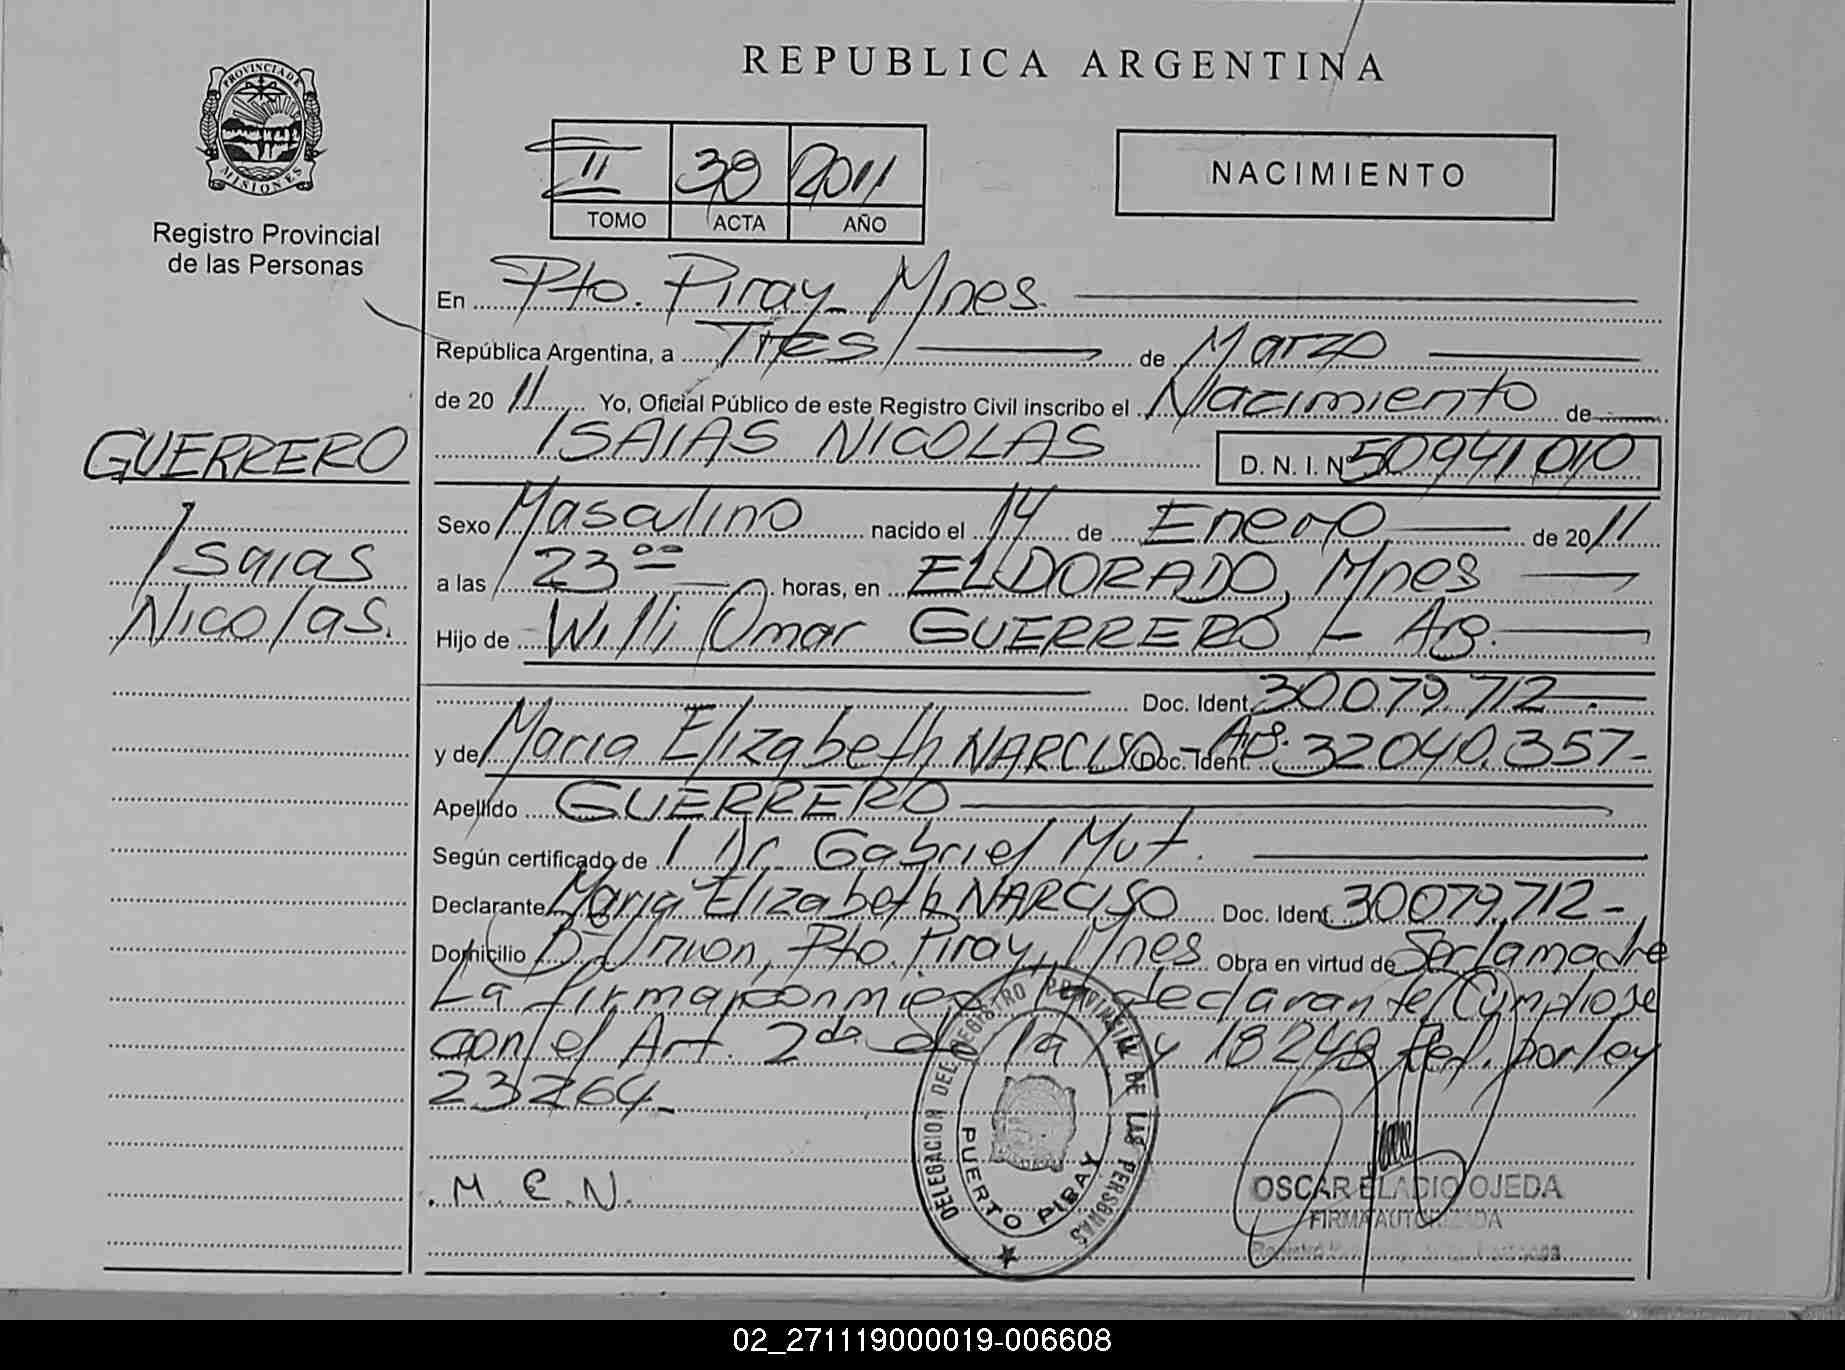 REPUBLICA ARGENTINA
PROVINCIA DE
MISIONES
Registro Provincial
de las Personas
II 2011
TOMO ACTA AÑO
NACIMIENTO
En Pto. Piray Mnes.
República Argentina, a Tres de Marzo
de 20 11 Yo, Oficial Público de este Registro Civil inscribo el Nacimiento de
ISAIAS NICOLAS D. N. I. Nº 50941010
GUERRERO
Isaias
Nicolas.
Sexo Masculino nacido el 14 de Enero de 20 11
a las 23 ºº horas, en ELDORADO, Mnes
Hijo de Willi Omar GUERRERO - Arg.
Doc. Ident. 30079.712-.
y de Maria Elizabeth NARCISO - Arg. Doc. Ident. 32040.357-
Apellido GUERRERO
Según certificado de Dr. Gabriel Mut.
Declarante Maria Elizabeth NARCISO Doc. Ident. 30079.712-
Domicilio Bº Union, Pto. Piray, Mnes Obra en virtud de Ser la madre
La firma declarante Cumplose
con el Art. 2do. la 18248 por ley
23264-
M. E. N.
DELEGACION DEL REGISTRO PROVINCIAL DE LAS PERSONAS
PUERTO PIRAY
OSCAR ELADIO OJEDA
FIRMA AUTORIZADA
02_271119000019-006608